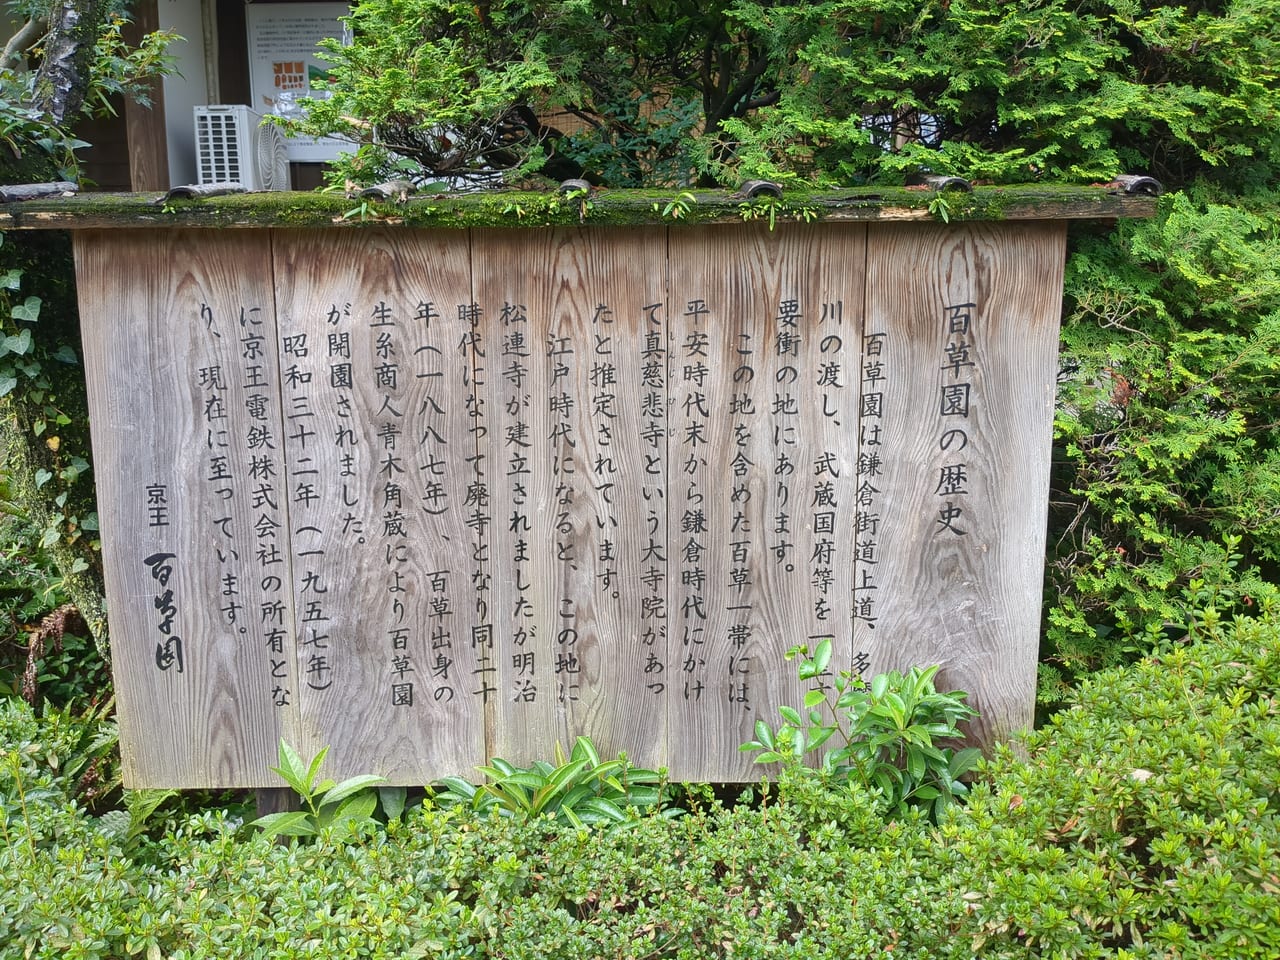 百草園の歴史
百草園は鎌倉街道上道、多
川の渡し、武蔵国府等を一
要衝の地にあります。
この地を含めた百草一帯には、
平安時代末から鎌倉時代にかけ
て真慈悲寺という大寺院があっ
しんじひじ
たと推定されています。
江戸時代になると、この地に
松連寺が建立されましたが明治
時代になって廃寺となり同二十
年（一八八七年）、百草出身の
生糸商人青木角蔵により百草園
が開園されました。
昭和三十二年（一九五七年）
に京王電鉄株式会社の所有とな
り、現在に至っています。
京王 百草園